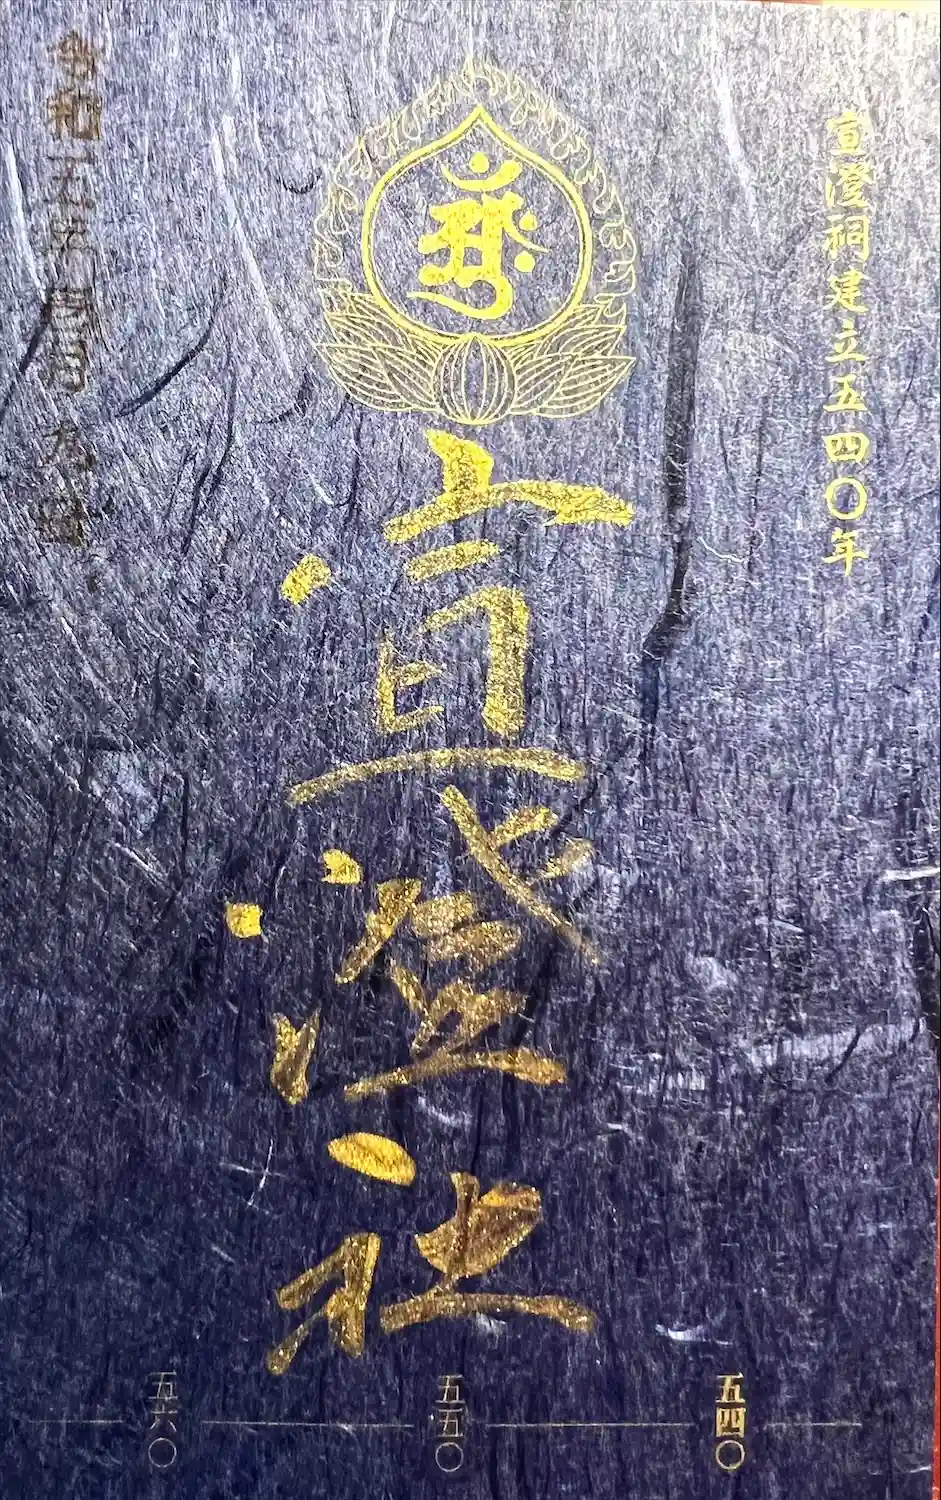 宣澄祠建立五四〇年
宣澄社
令和五年
五四〇
五五〇
五六〇